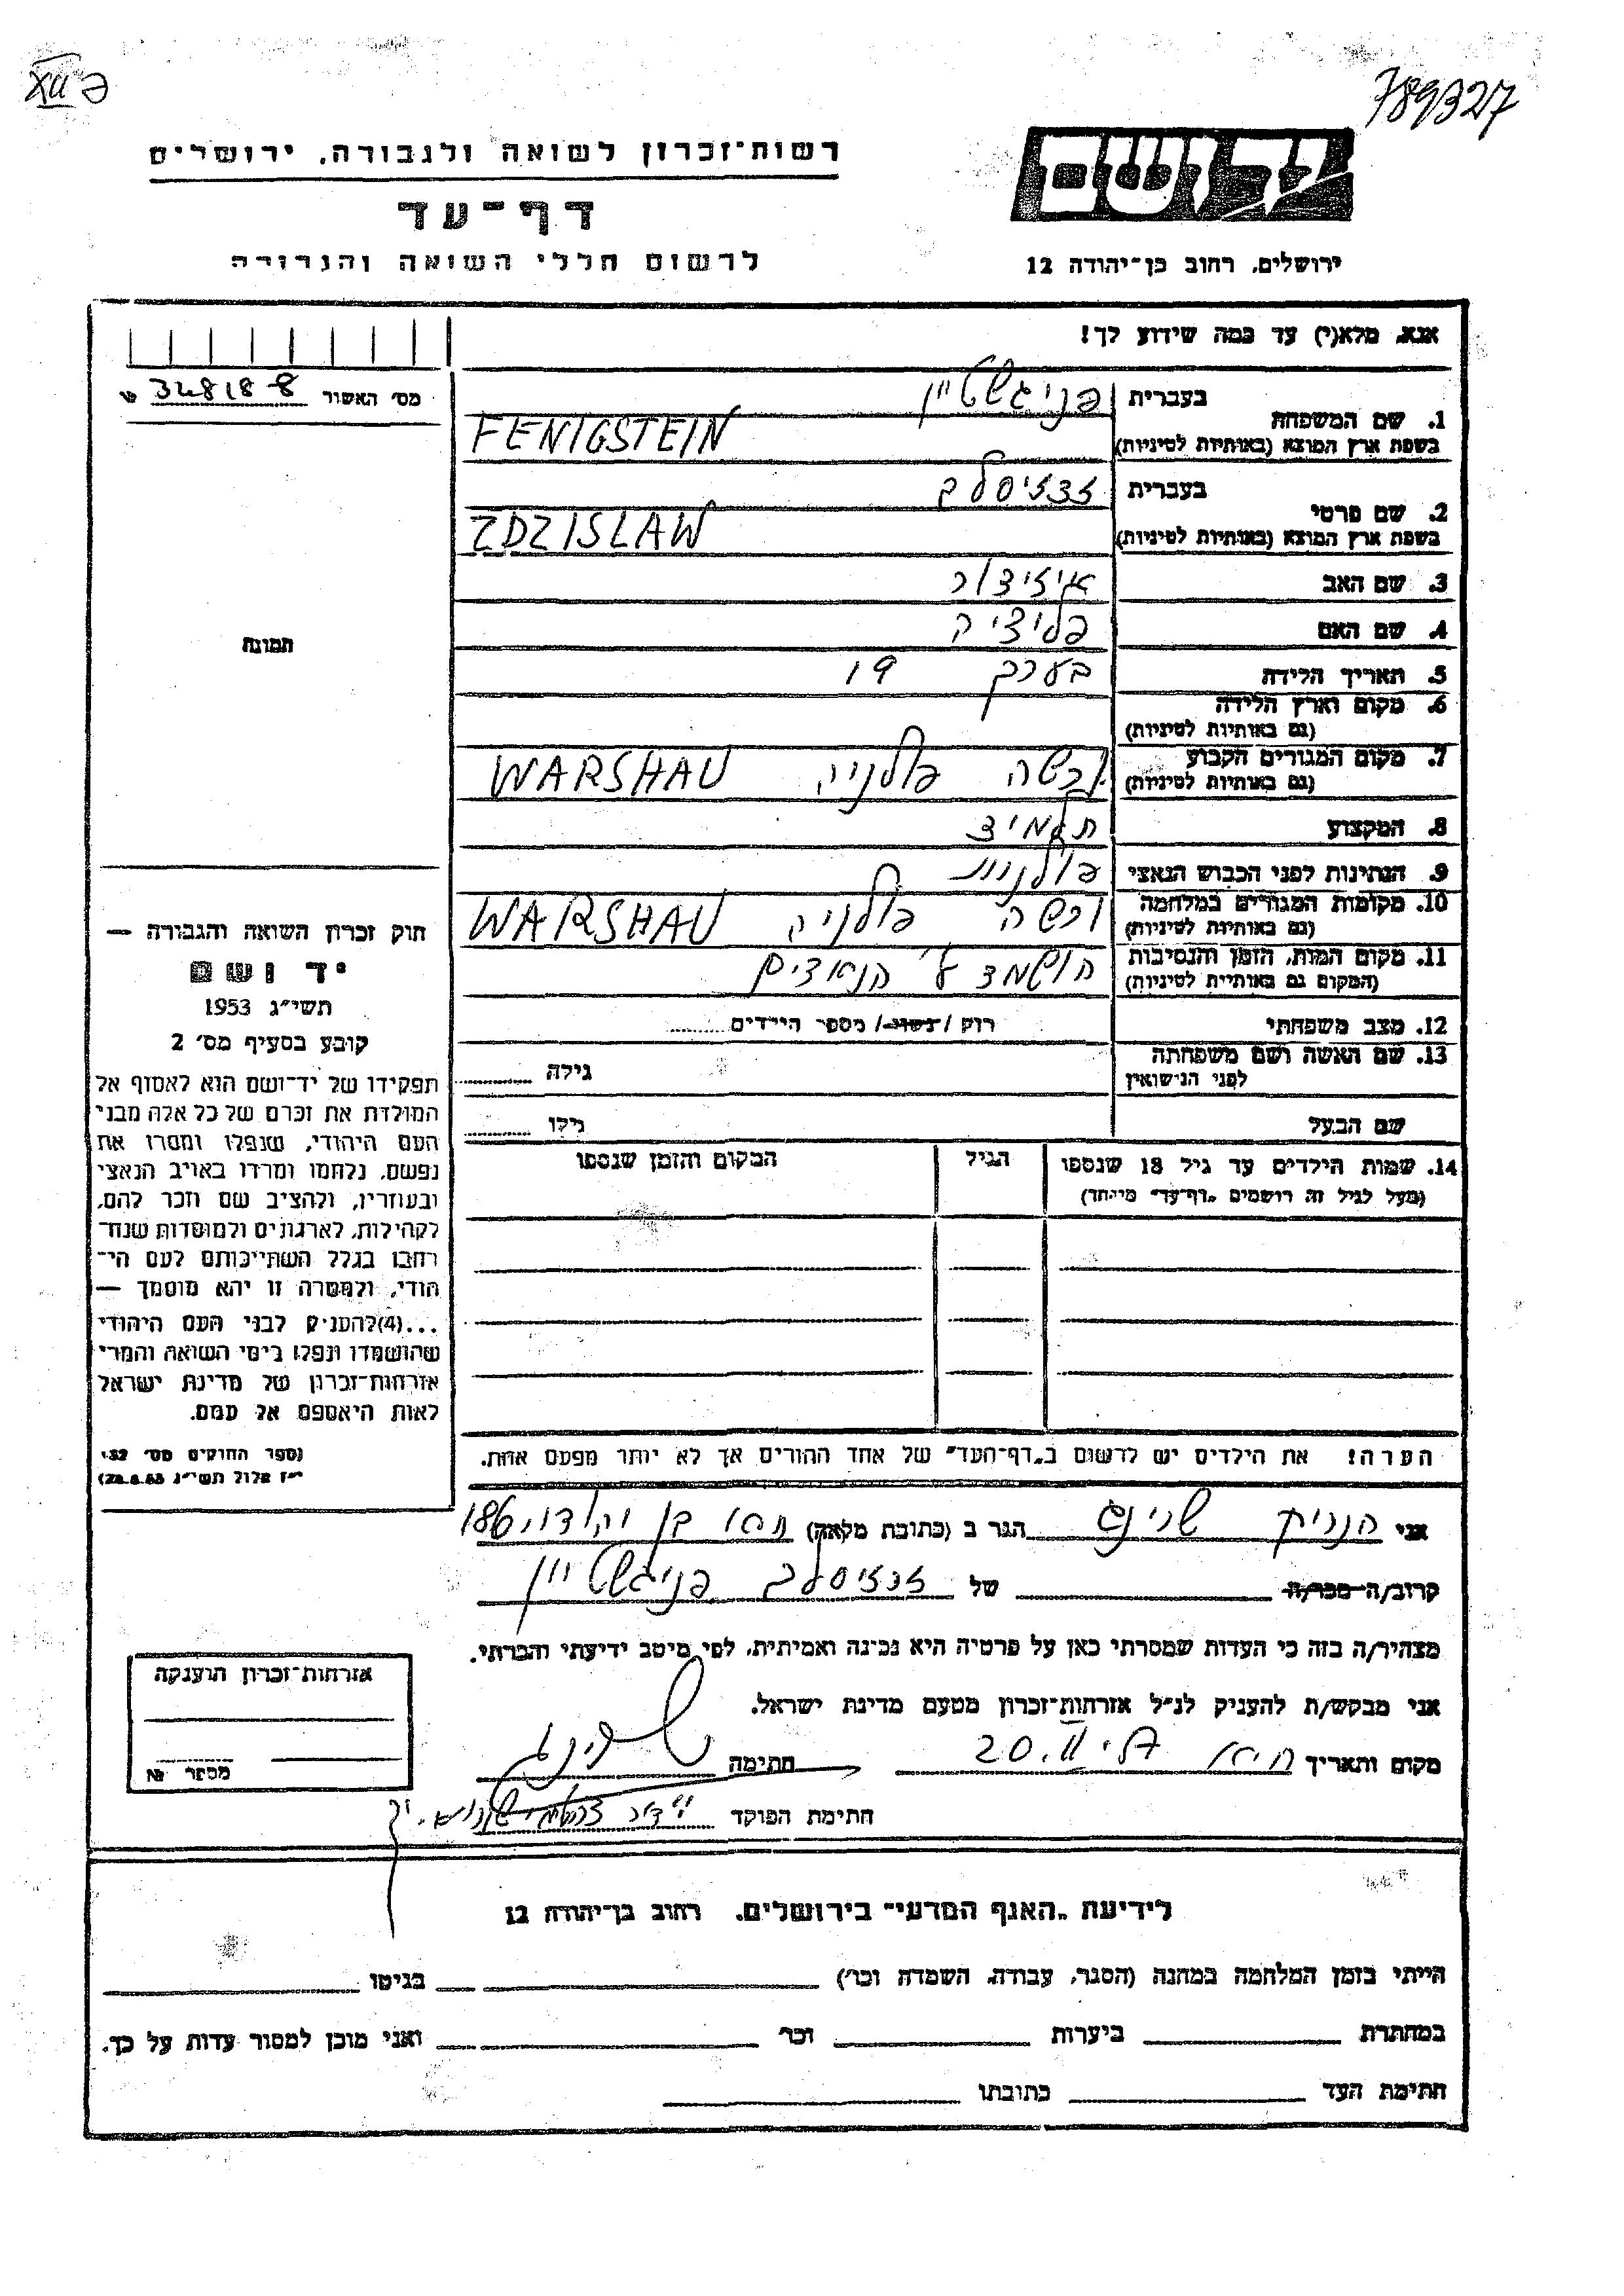 789327
רשות־זכרון לשואה ולגבורה, ירושלים
יד ושם
דף־עד
לרשום חללי השואה והגבורה
ירושלים, רחוב בן־יהודה 12
אנא, מלא(י) עד כמה שידוע לך!
מס׳ האשור 34818-8
1. שם המשפחה
בעברית פניגשטיין
בשפת ארץ המוצא (באותיות לטיניות) FENIGSTEIN
2. שם פרטי
בעברית זדזיסלב
בשפת ארץ המוצא (באותיות לטיניות) ZDZISLAW
3. שם האב איזידור
4. שם האם פליציה
5. תאריך הלידה בערך 19
6. מקום וארץ הלידה
(גם באותיות לטיניות)
7. מקום המגורים הקבוע ורשה פולניה WARSHAU
(גם באותיות לטיניות)
8. המקצוע תלמיד
9. הנתינות לפני הכבוש הנאצי פולנית
10. מקומות המגורים במלחמה ורשה פולניה WARSHAU
(גם באותיות לטיניות)
11. מקום המות, הזמן והנסיבות הושמד ע״י הנאצים
(המקום גם באותיות לטיניות)
12. מצב משפחתי רווק / נשוי / מספר הילדים
13. שם האשה ושם משפחתה גילה
לפני הנישואין
שם הבעל גילו
14. שמות הילדים עד גיל 18 שנספו הגיל המקום והזמן שנספו
(מעל לגיל זה רושמים „דף־עד״ מיוחד)
הערה! את הילדים יש לרשום ב„דף־העד״ של אחד ההורים אך לא יותר מפעם אחת.
תמונה
חוק זכרון השואה והגבורה —
יד ושם
תשי״ג 1953
קובע בסעיף מס׳ 2
תפקידו של יד־ושם הוא לאסוף אל
המולדת את זכרם של כל אלה מבני
העם היהודי, שנפלו ומסרו את
נפשם, נלחמו ומרדו באויב הנאצי
ובעוזריו, ולהציב שם וזכר להם,
לקהילות, לארגונים ולמוסדות שנח־
רחבו בגלל השתייכותם לעם הי־
הודי, ולמטרה זו יהא מוסמך —
...(4) להעניק לבני העם היהודי
שהושמדו ונפלו בימי השואה והמרי
אזרחות־זכרון של מדינת ישראל
לאות היאספם אל עמם.
(ספר החוקים מס׳ 132
י״ז אלול תשי״ג 28.8.53)
אני הנריק הגר ב (כתובת מלאה) 186
קרוב/ה מכר/ה של זדזיסלב פניגשטיין
מצהיר/ה בזה כי העדות שמסרתי כאן על פרטיה היא נכונה ואמיתית, לפי מיטב ידיעתי והכרתי.
אני מבקש/ת להעניק לנ״ל אזרחות־זכרון מטעם מדינת ישראל.
מקום ותאריך 20.II חתימה
חתימת הפוקד
אזרחות־זכרון הוענקה
מספר №
לידיעת „האגף המדעי״ בירושלים, רחוב בן־יהודה 12
הייתי בזמן המלחמה במחנה (הסגר, עבודה, השמדה וכו׳) בגיטו
במחתרת ביערות וכו׳ ואני מוכן למסור עדות על כך.
חתימת העד כתובתו